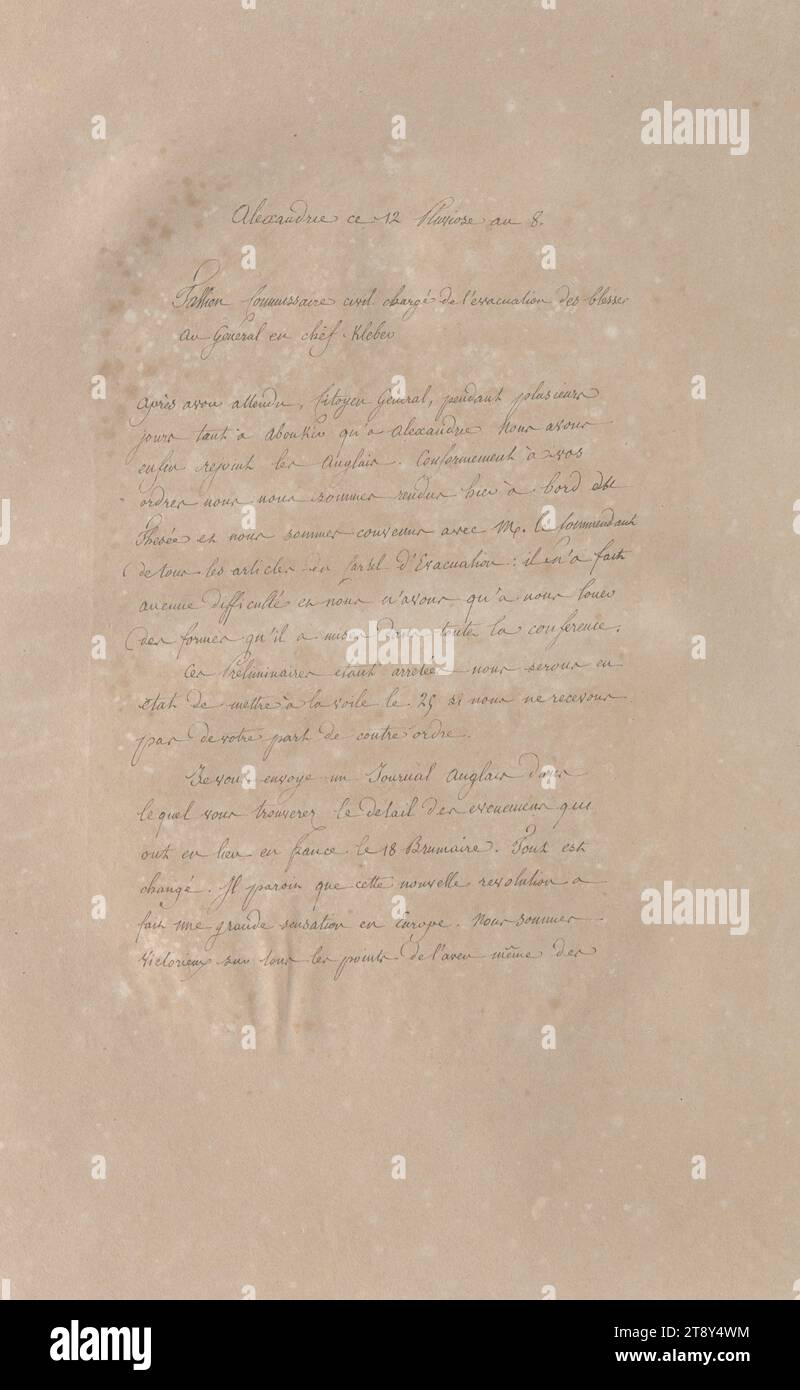 Alexandrie ce 12 Pluviose an 8.
Tallien Commissaire civil chargé de l'evacuation des blesses
au General en chéf Kleber
après avoir attendu, Citoyen General, pendant plusieurs
jours tant à Aboukir qu'à Alexandrie nous avons
enfin rejoint les Anglais. Conformement à vos
ordres nous nous sommes rendus hier à bord du
Thesée et nous sommes convenus avec M. le Commendant
de tous les articles du Cartel d'Evacuation : il n'a fait
aucune difficulté et nous n'avons qu'a nous louer
des formes qu'il a mis dans toute la conference.
Ces Préliminaires etant arretés nous serons en
état de mettre à la voile le 25 si nous ne recevons
pas de votre part de contre ordre.
Je vous envoye un Journal Anglais dans
lequel vous trouverez le detail des evenemens qui
ont eu lieu en france le 18 Brumaire. Tout est
changé. Il paroit que cette nouvelle revolution a
fait une grande sensation en Europe. Nous sommes
victorieux sur tous les points de l'aveu même des
alamy
Image ID: 2T8Y4WM
www.alamy.com